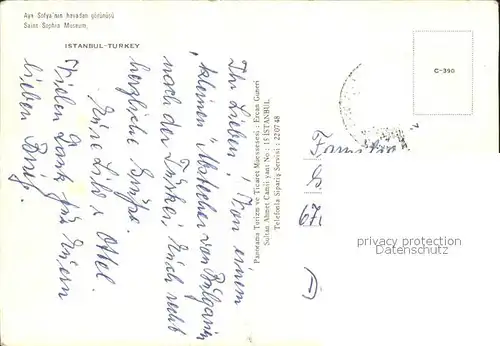 Aya Sofya'nın havadan görünüşü
Saint Sophia Museum,
ISTANBUL-TURKEY
C-390
Ihr Lieben! Von einem
kleinen "Abstecher von Bulgarien
nach der Türkei, Euch recht
herzliche Grüße.
Eure Lilo u
Vielen Dank für Euern
lieben Brief.
Panorama Turizm ve Ticaret Müessesesi : Ercan Guneri
Sultan Ahmet Camii yanı No : 15 İSTANBUL
Telefonla Sipariş Servisi : 2207 48
Familie
671
privacy protection
AnsichtskartenCenter